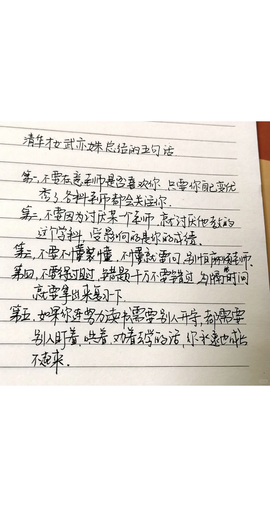 清华才女武亦姝总结的五句话
第一,不要在意老师是否喜欢你,只要你自己变优
秀了各科老师都会关注你.
第二,不要因为讨厌某个老师,就讨厌他教的
这个学科,学影响的是你的成绩.
第三,不要不懂装懂,不懂就要问,别怕麻烦老师.
第四,不要得过且过,错题千万不要错过,每隔一段时间
就要拿出来复习一下.
第五,如果你连努力读书需要别人开导,都需要
别人盯着,哄着,劝着去学的话,你永远也成长
不起来.